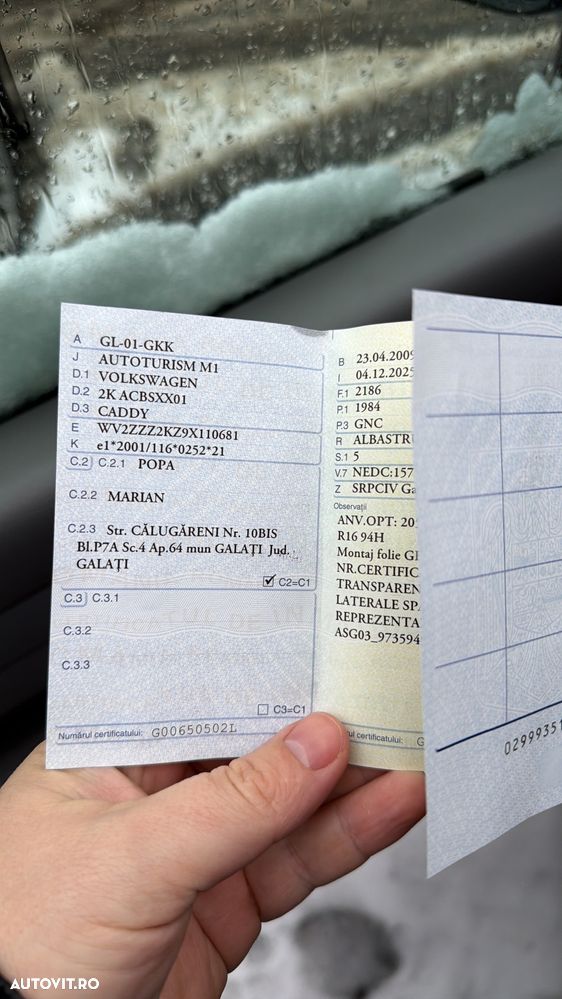 A GL-01-GKK
J AUTOTURISM M1
D.1 VOLKSWAGEN
D.2 2K ACBSXX01
D.3 CADDY
E WV2ZZZ2KZ9X110681
K e1*2001/116*0252*21
C.2 C.2.1 POPA
C.2.2 MARIAN
C.2.3 Str. CĂLUGĂRENI Nr. 10BIS
Bl.P7A Sc.4 Ap.64 mun GALAŢI Jud.
GALAŢI
C2=C1
C.3 C.3.1
C.3.2
C.3.3
C3=C1
Numărul certificatului: G00650502L
B 23.04.2009
I 04.12.2025
F.1 2186
P.1 1984
P.3 GNC
R ALBASTR
S.1 5
V.7 NEDC:157
Z SRPCIV Ga
Observaţii
ANV.OPT: 20
R16 94H
Montaj folie G
NR.CERTIFIC
TRANSPAREN
LATERALE SPA
REPREZENTA
ASG03_973594
ul certificatului: G
0299935
AUTOVIT.RO